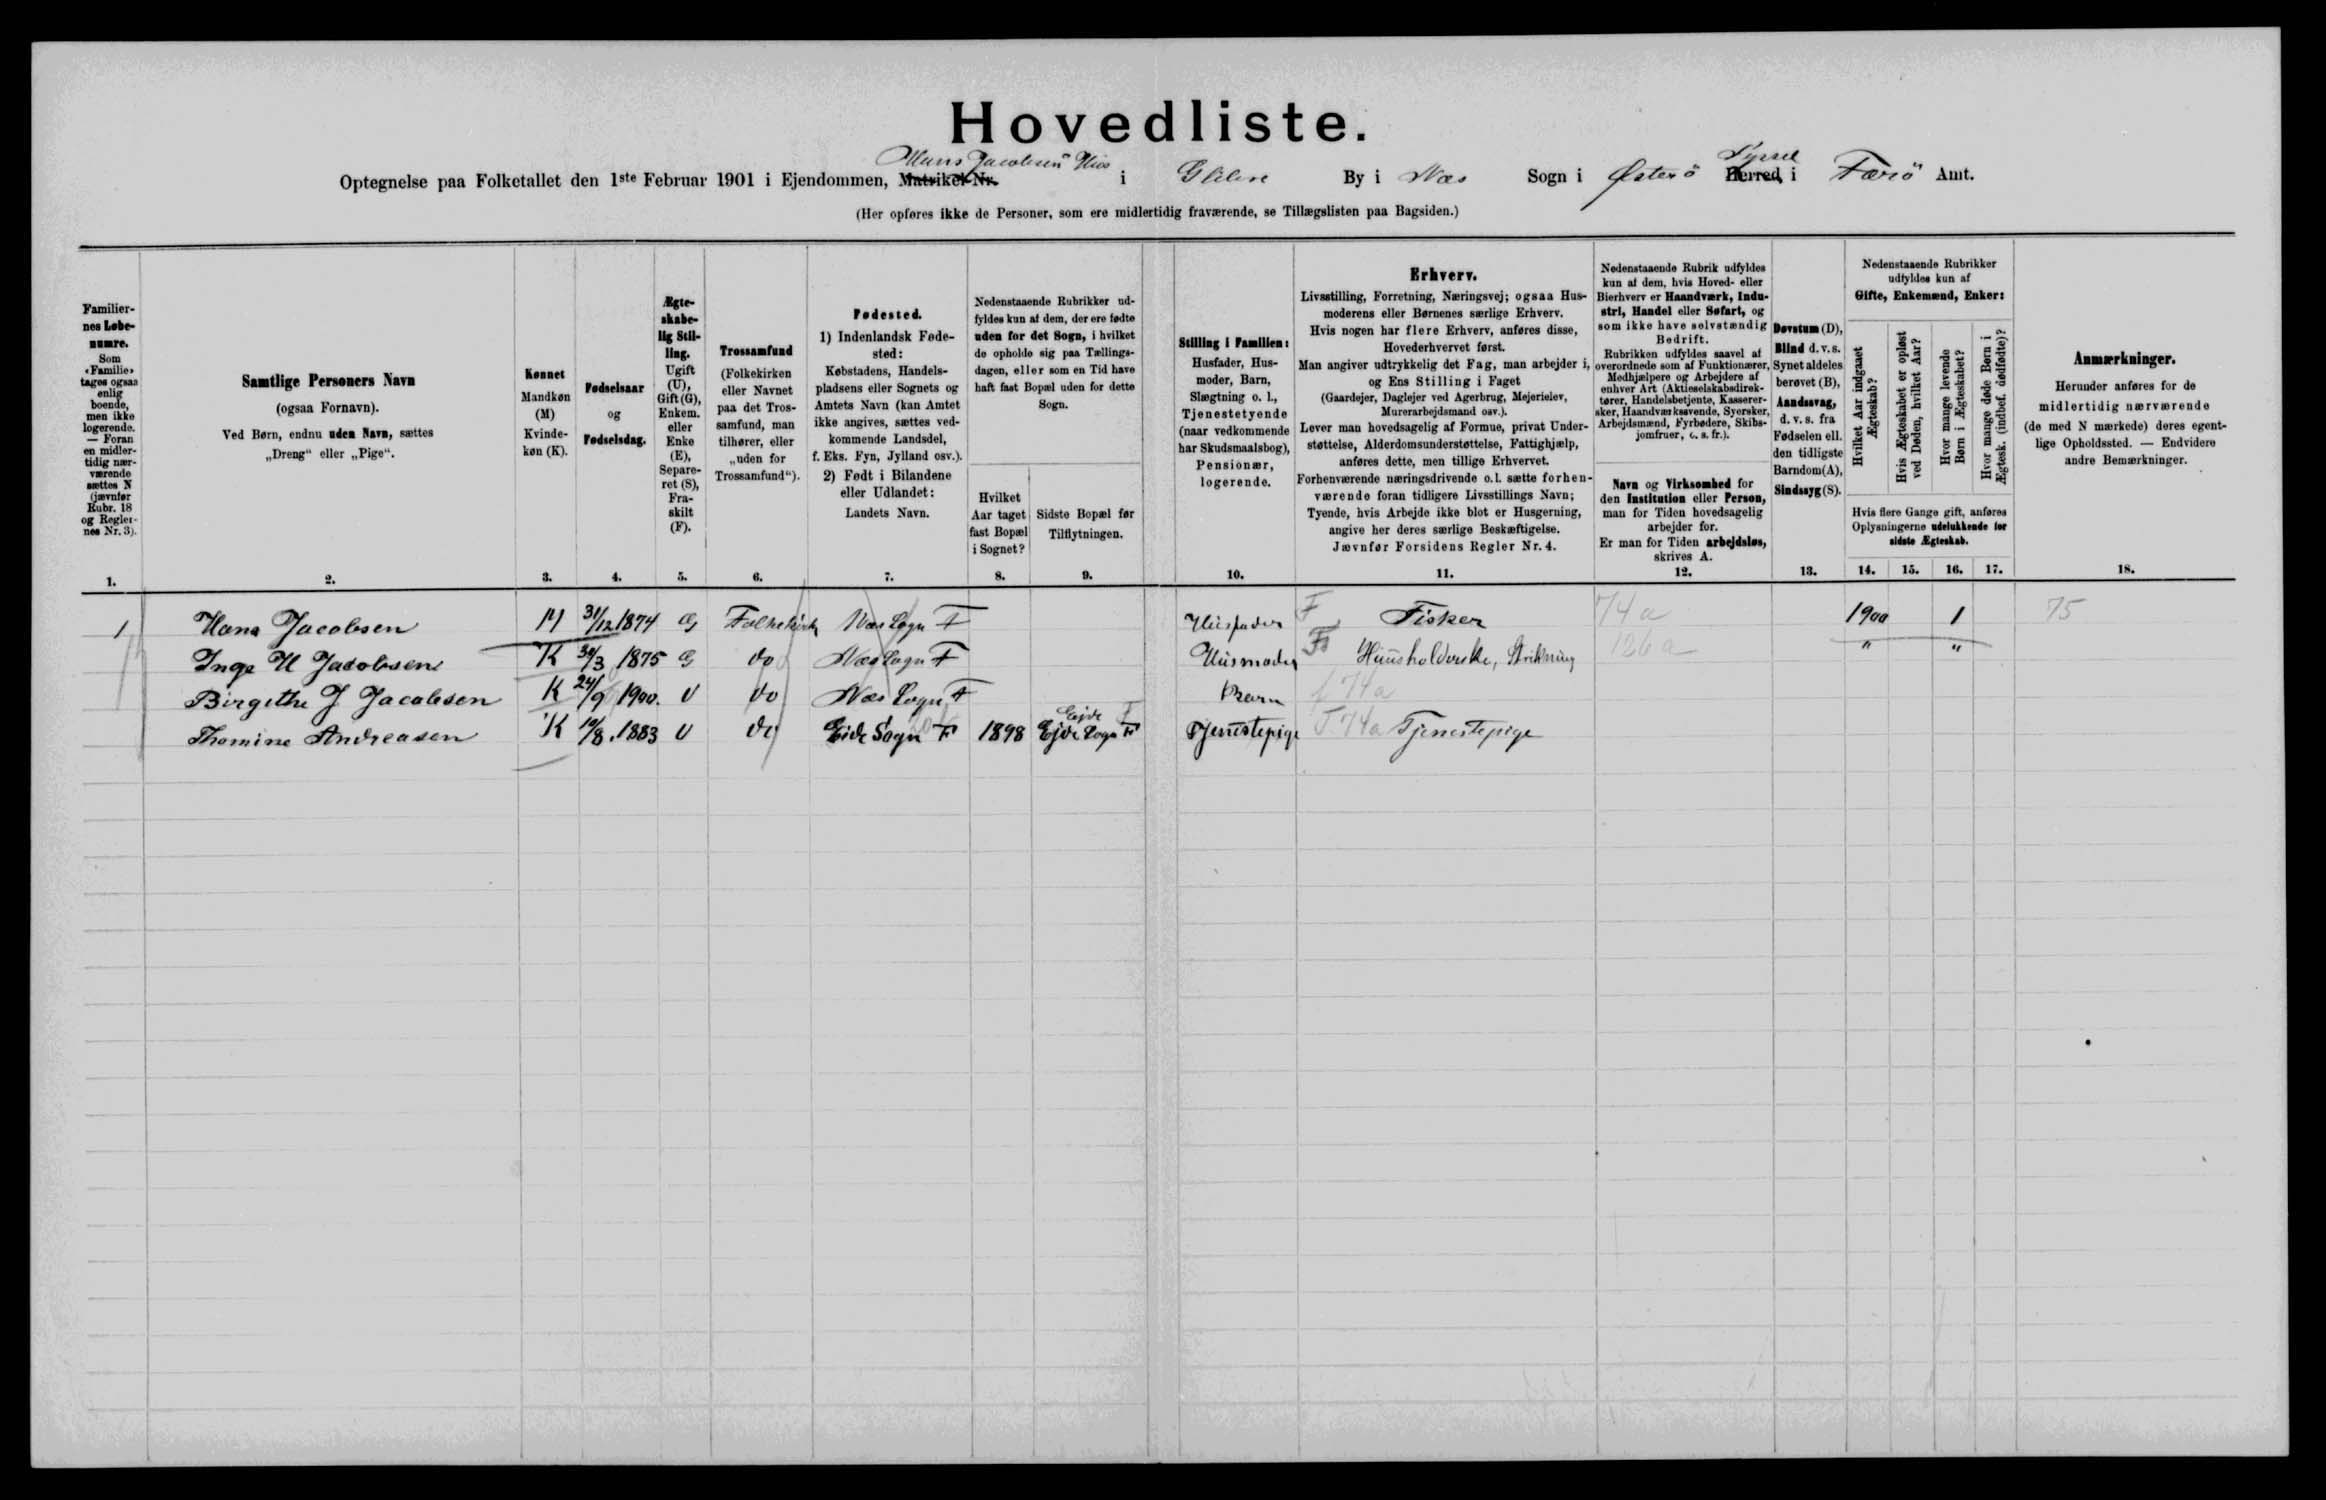 Hovedliste.
Hans Jacobsens Hus Syssel
Optegnelse paa Folketallet den 1ste Februar 1901 i Ejendommen, Matrikel-Nr. i Glibre By i Næs Sogn i Østerö Herred, i Færö Amt.
(Her opføres ikke de Personer, som ere midlertidig fraværende, se Tillægslisten paa Bagsiden.)
Familier-
nes Løbe-
numre.
Som
«Familie»
tages ogsaa
enlig
boende,
men ikke
logerende.
— Foran
en midler-
tidig nær-
værende
sættes N
(jævnfør
Rubr. 18
og Regler-
nes Nr. 3).
1.
Samtlige Personers Navn
(ogsaa Fornavn).
Ved Børn, endnu uden Navn, sættes
„Dreng“ eller „Pige“.
2.
Kønnet
Mandkøn
(M)
Kvinde-
køn (K).
3.
Fødselsaar
og
Fødselsdag.
4.
Ægte-
skabe-
lig Stil-
ling.
Ugift
(U),
Gift (G),
Enkem.
eller
Enke
(E),
Separe-
ret (S),
Fra-
skilt
(F).
5.
Trossamfund
(Folkekirken
eller Navnet
paa det Tros-
samfund, man
tilhører, eller
„uden for
Trossamfund“).
6.
Fødested.
1) Indenlandsk Føde-
sted:
Købstadens, Handels-
pladsens eller Sognets og
Amtets Navn (kan Amtet
ikke angives, sættes ved-
kommende Landsdel,
f. Eks. Fyn, Jylland osv.).
2) Født i Bilandene
eller Udlandet:
Landets Navn.
7.
Nedenstaaende Rubrikker ud-
fyldes kun af dem, der ere fødte
uden for det Sogn, i hvilket
de opholde sig paa Tællings-
dagen, eller som en Tid have
haft fast Bopæl uden for dette
Sogn.
Hvilket
Aar taget
fast Bopæl
i Sognet?
8.
Sidste Bopæl før
Tilflytningen.
9.
Stilling i Familien:
Husfader, Hus-
moder, Barn,
Slægtning o. l.,
Tjenestetyende
(naar vedkommende
har Skudsmaalsbog),
Pensionær,
logerende.
10.
Erhverv.
Livsstilling, Forretning, Næringsvej; ogsaa Hus-
moderens eller Børnenes særlige Erhverv.
Hvis nogen har flere Erhverv, anføres disse,
Hovederhvervet først.
Man angiver udtrykkelig det Fag, man arbejder i,
og Ens Stilling i Faget
(Gaardejer, Daglejer ved Agerbrug, Mejerielev,
Murerarbejdsmand osv.).
Lever man hovedsagelig af Formue, privat Under-
støttelse, Alderdomsunderstøttelse, Fattighjælp,
anføres dette, men tillige Erhvervet.
Forhenværende næringsdrivende o.l. sætte forhen-
værende foran tidligere Livsstillings Navn;
Tyende, hvis Arbejde ikke blot er Husgerning,
angive her deres særlige Beskæftigelse.
Jævnfør Forsidens Regler Nr. 4.
11.
Nedenstaaende Rubrik udfyldes
kun af dem, hvis Hoved- eller
Bierhverv er Haandværk, Indu-
stri, Handel eller Søfart, og
som ikke have selvstændig
Bedrift.
Rubrikken udfyldes saavel af
overordnede som af Funktionærer,
Medhjælpere og Arbejdere af
enhver Art (Aktieselskabsdirek-
tører, Handelsbetjente, Kasserer-
sker, Haandværkssvende, Syersker,
Arbejdsmænd, Fyrbødere, Skibs-
jomfruer, o. s. fr.).
Navn og Virksomhed for
den Institution eller Person,
man for Tiden hovedsagelig
arbejder for.
Er man for Tiden arbejdsløs,
skrives A.
12.
Døvstum (D),
Blind d. v. s.
Synet aldeles
berøvet (B),
Aandssvag,
d. v. s. fra
Fødselen ell.
den tidligste
Barndom(A),
Sindssyg (S).
13.
Nedenstaaende Rubrikker
udfyldes kun af
Gifte, Enkemænd, Enker:
Hvilket Aar indgaaet
Ægteskab?
Hvis Ægteskabet er opløst
ved Døden, hvilket Aar?
Hvor mange levende
Børn i Ægteskabet?
Hvor mange døde Børn i
Ægtesk. (indbef. dødfødte)?
Hvis flere Gange gift, anføres
Oplysningerne udelukkende for
sidste Ægteskab.
14. 15. 16. 17.
Anmærkninger.
Herunder anføres for de
midlertidig nærværende
(de med N mærkede) deres egent-
lige Opholdssted. — Endvidere
andre Bemærkninger.
18.
1 Hans Jacobsen M 31/12 1874 G Folkekirk Næs Sogn F Husfader F Fisker 74 a 1900 1 75
Inge H Jacobsen K 30/3 1875 G do Næs Sogn F Husmoder Huusholderske, Strikning 126 a " "
Birgithe J Jacobsen K 24/9 1900. U do Næs Sogn F Barn f 74a
Thomine Andreasen K 10/8. 1883 U do Eide Sogn F 1898 Ejde Sogn F Tjenestepige T. 74a Tjenestepige